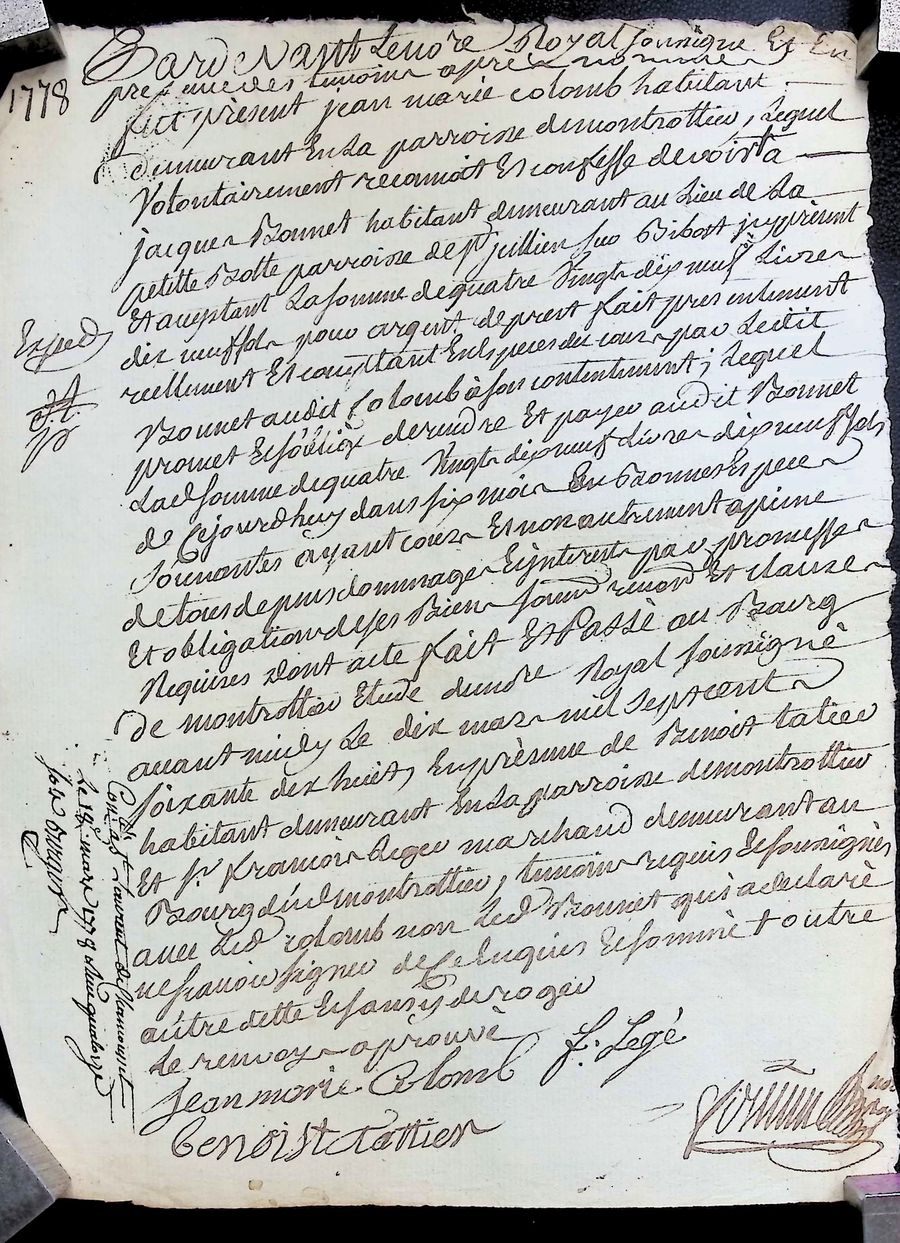 1778
Pardevant Lenore Royal soussigné Et En
presence des temoins apres nommes
fut present jean marie colomb habitant
demeurant En La parroisse de montrottier, Lequel
Volontairement reconnoit Et confesse devoir a
jacques Bonnet habitant demeurant au Lieu de La
petitte parroisse de st jullien sur Bibost jcy présent
Et acceptant La somme de quatre Vingt dix neuf Livres
dix neuf sols pour argent de pret fait presentement
reellement Et comptant En Espèces de cour par Ledit
Bonnet audit Colomb à son contentement; Lequel
promet Et s'oblige de rendre Et payer audit Bonnet
Lad somme de quatre Vingt dix neuf Livres dix neuf sols
de Cejourdhuy dans six mois En Bonnes Espece
sonnantes ayant cours Et non autrement a peine
de tous depens dommages Et interest par promesse
Et obligation de ses Biens soum renon Et clauses
Requises Dont acte fait Et Passé au Bourg
de montrottier Etude dudre Royal soussigné
avant midy Le dix mars mil sept cent
soixante dix huit, En présence de Benoit tatier
habitant demeurant En La parroisse de montrottier
Et sr francois Legee marchand demeurant au
Bourg dud montrottier, temoins requis Et soussignés
avec Led colomb non Led Bonnet qui a declaré
ne scavoir signer de Ce Enquis Et sommé + outre
autre dette Et sans y deroger
Le renvoy approuvé
Jean marie Colomb f. Legé
benoist tattier
Exped
Con Le 19 mars 1778 Reçu quatorze